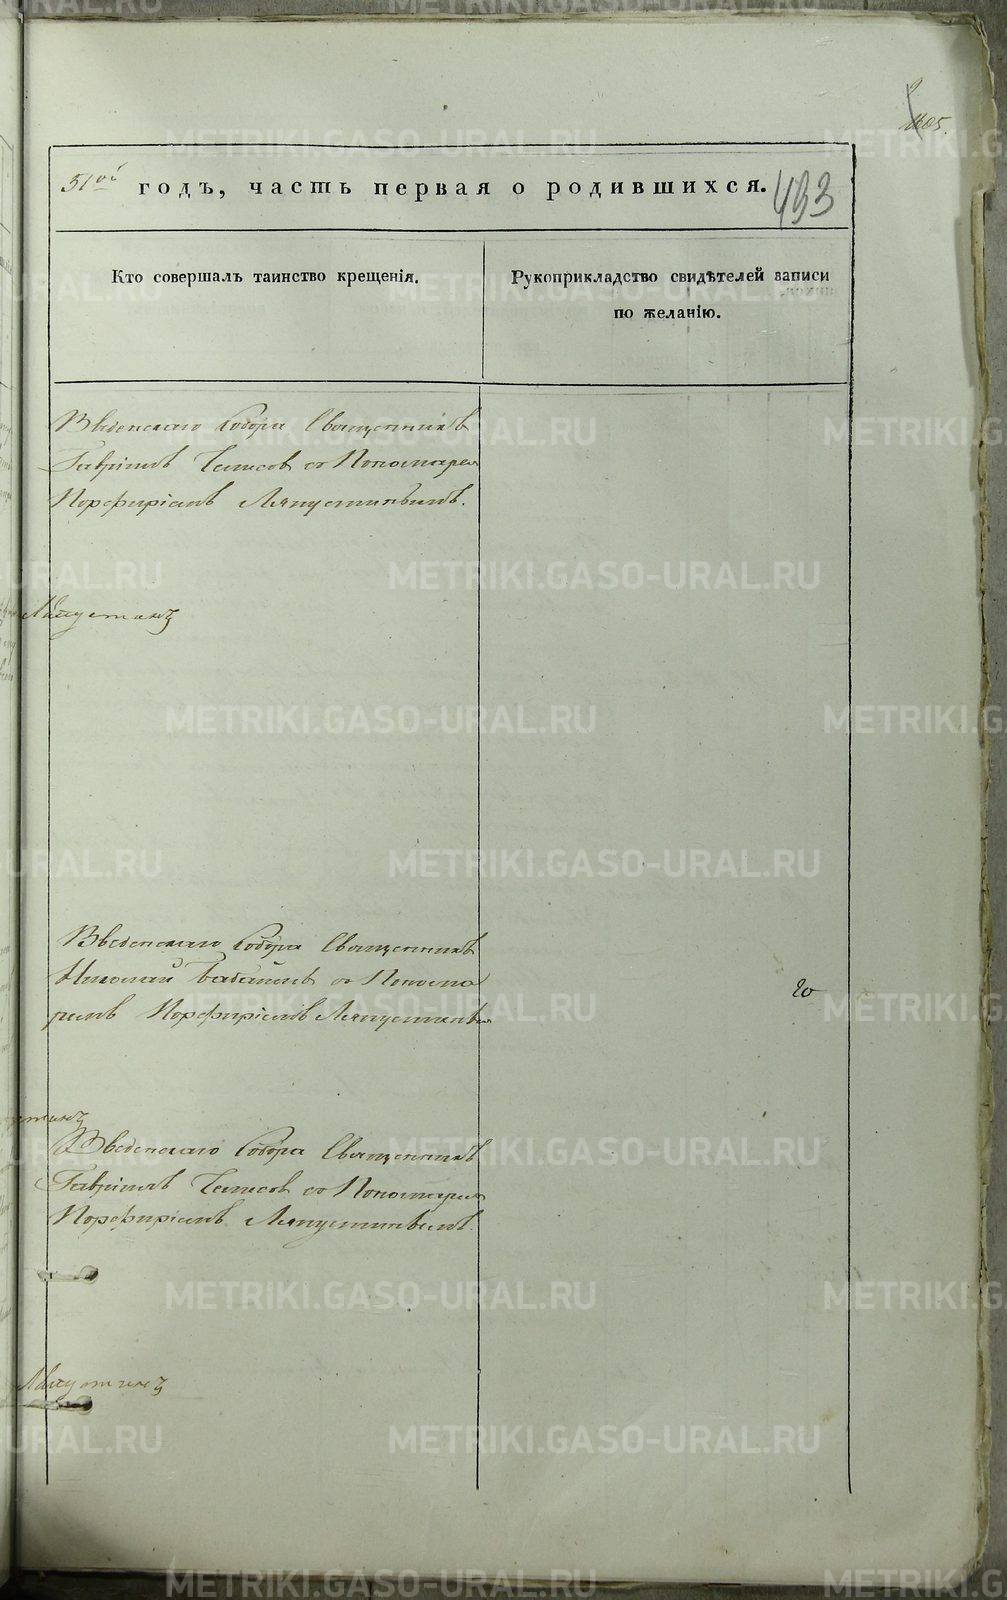 405.
51ый годъ, часть первая о родившихся.
493
Кто совершалъ таинство крещенія.
Рукоприкладство свидѣтелей записи
по желанію.
Введенскаго Собора Священникъ
Гавріилъ с Пономаремъ
Порфиріемъ Ляпустинымъ.
Ляпустинъ
Введенскаго Собора Священникъ
Николай с Понома
ремъ Порфиріемъ Ляпустинымъ
20
Введенскаго Собора Священникъ
Гавріилъ с Пономаремъ
Порфиріемъ Ляпустинымъ.
Ляпустинъ
METRIKI.GASO-URAL.RU